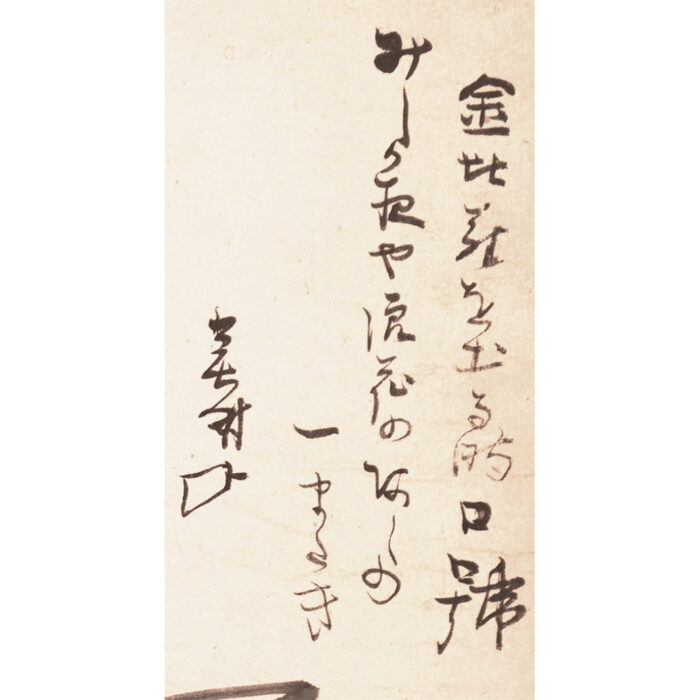 金比羅を出る時口號
みしか夜や浪花のあしの
一ま
蕪村